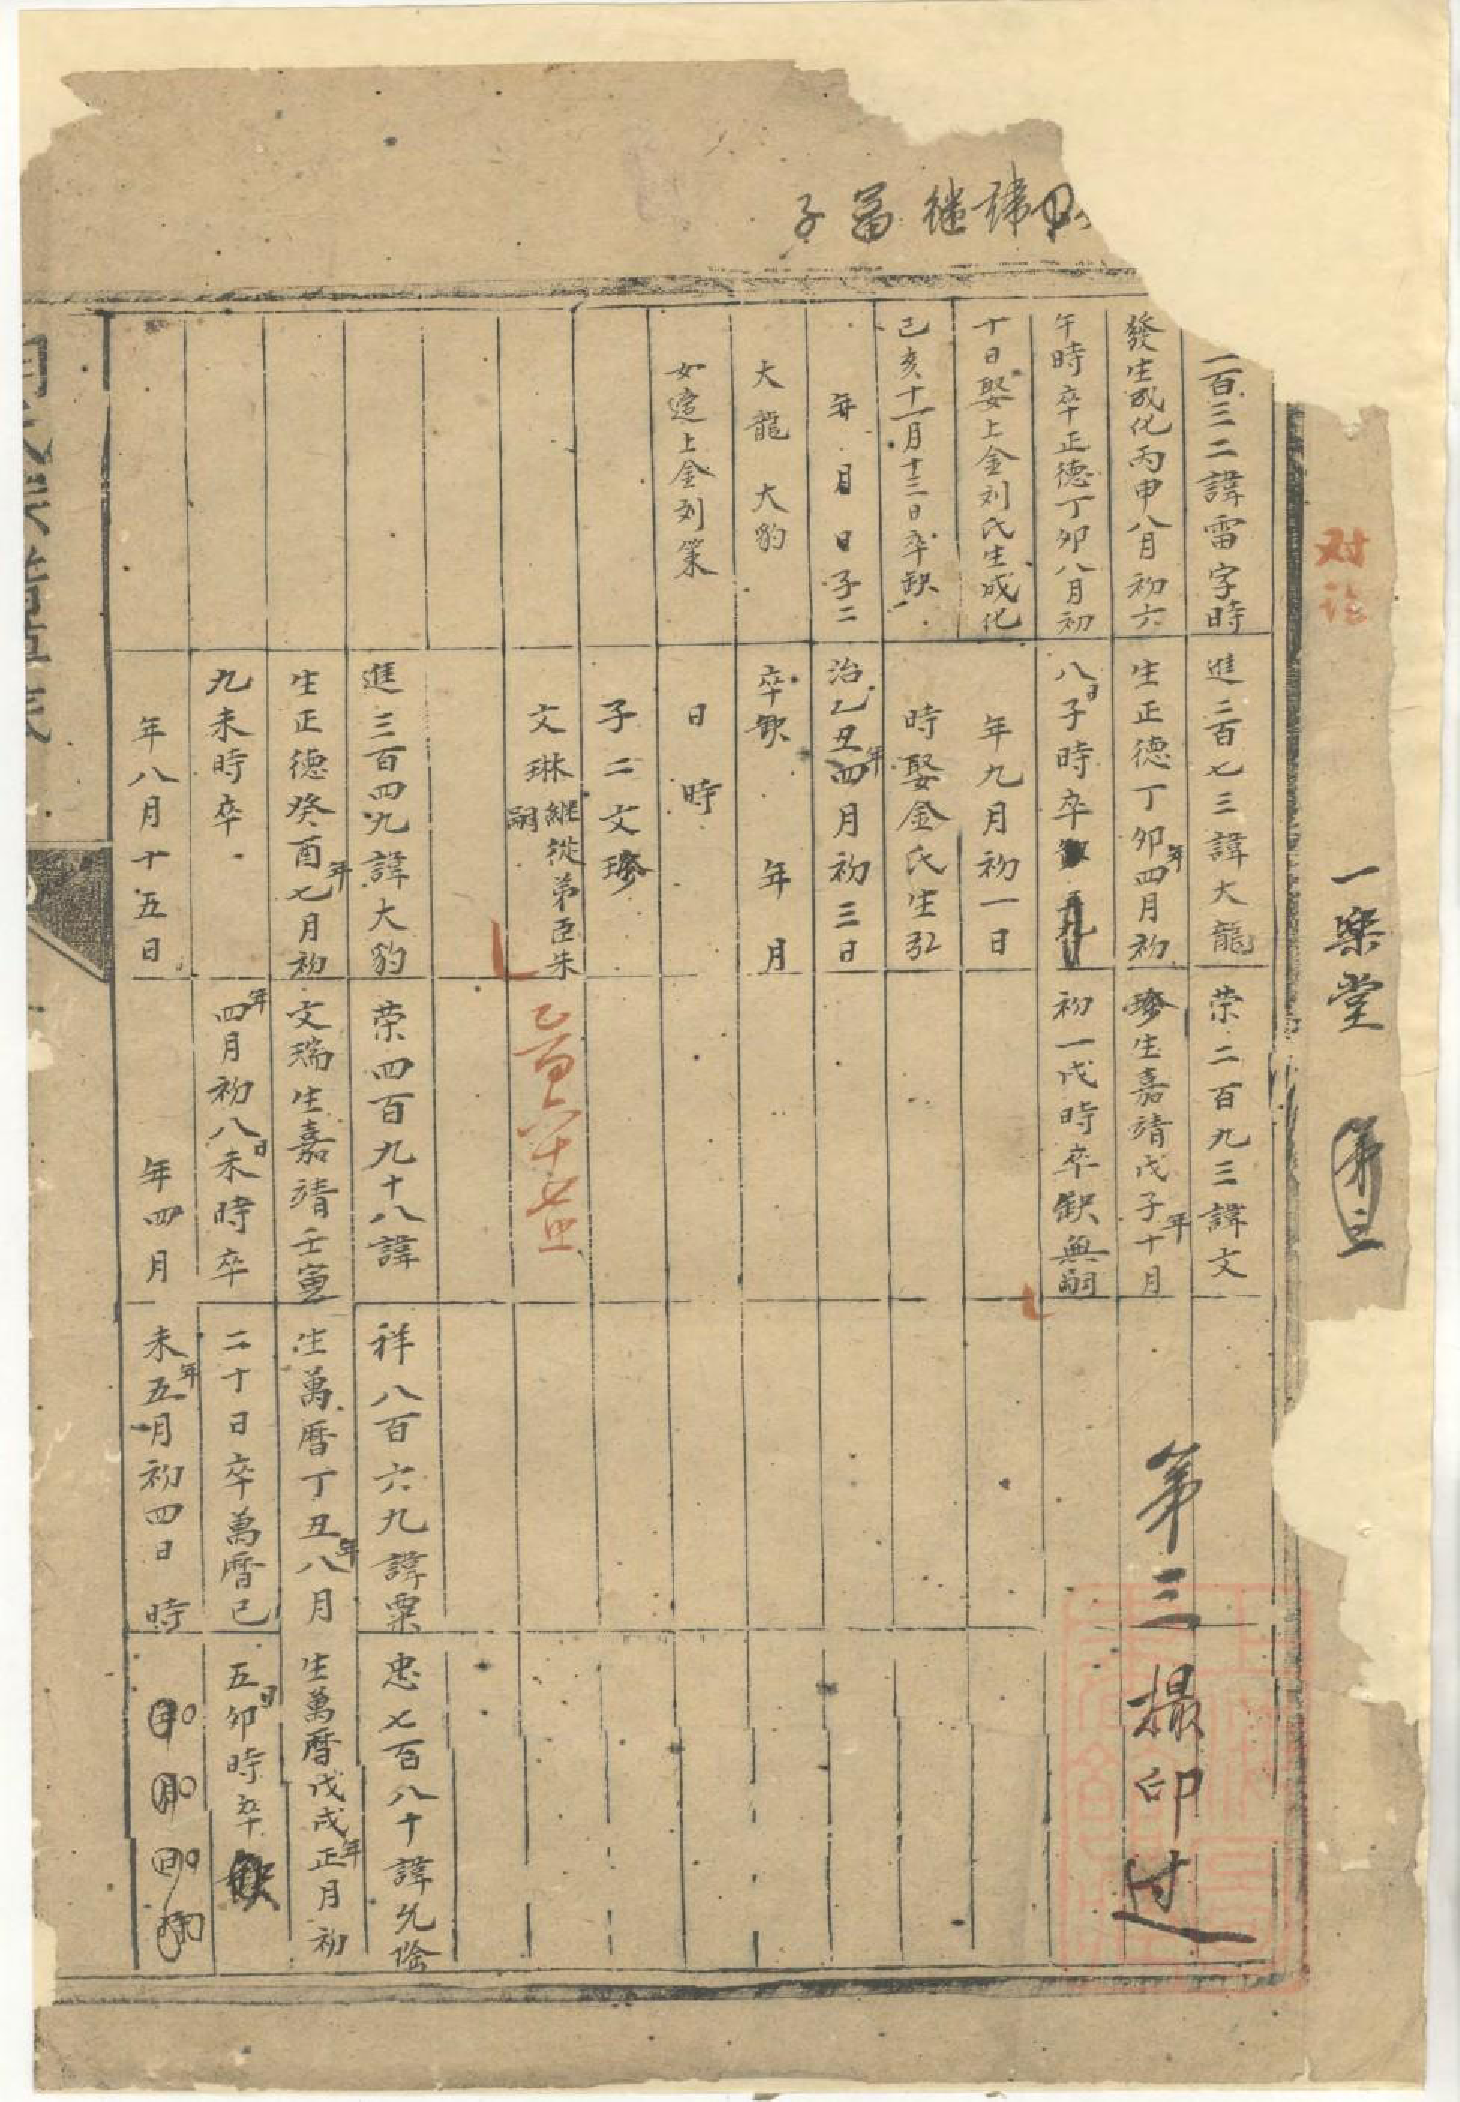 子富继諱
对讫
一樂堂
一百三二諱雷字時
發生成化丙申八月初六
午時卒正德丁卯八月初
十日娶上金刘氏生成化
己亥十一月十三日卒缺
年月日子二
大龍 大豹
女適上金刘策
進二百七三諱大龍
生正德丁卯年四月初
八日子時卒
年九月初一日
時娶金氏生弘
治乙丑年四月初三日
卒缺 年 月
日 時
子二文珍
文琳継從弟臣朱
嗣
進三百四九諱大豹
生正德癸酉年七月初
九未時卒
年八月十五日
荣二百九三諱文
珍生嘉靖戊子年十月
初一戌時卒缺無嗣
荣四百九十八諱
文瑞生嘉靖壬寅
年四月初八日未時卒
年四月
祥八百六九諱粟
生萬曆丁丑年八月
二十日卒萬曆己
未年五月初四日時
忠七百八十諱允
生萬曆戊戌年正月初
五日卯時卒缺
年月日時
第三撮印过